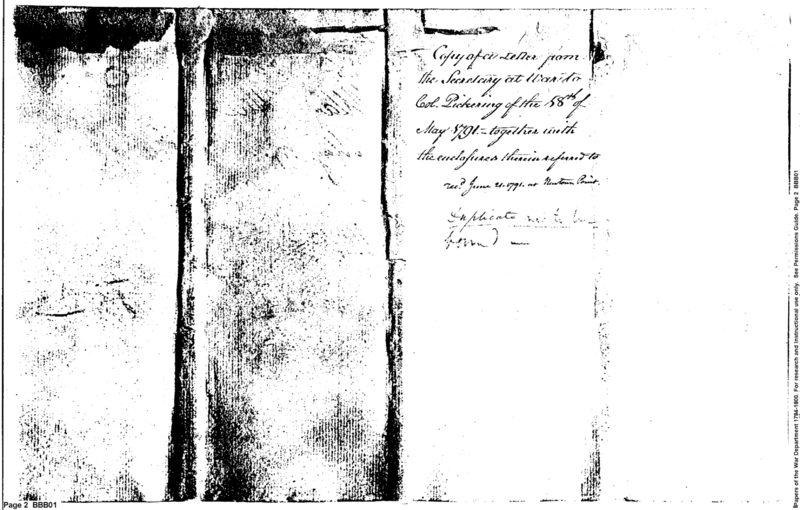 Copy of a Letter from
the Secretary at War to
Col. Pickering of the 18th of
May 1791 – together with
the enclosures therein referred to
recd June 21. 1791. at Newtown Point.
Duplicate not to be
bound —
Page 2 BBB01
Papers of the War Department 1784-1800. For research and instructional use only. See Permissions Guide, Page 2 BBB01